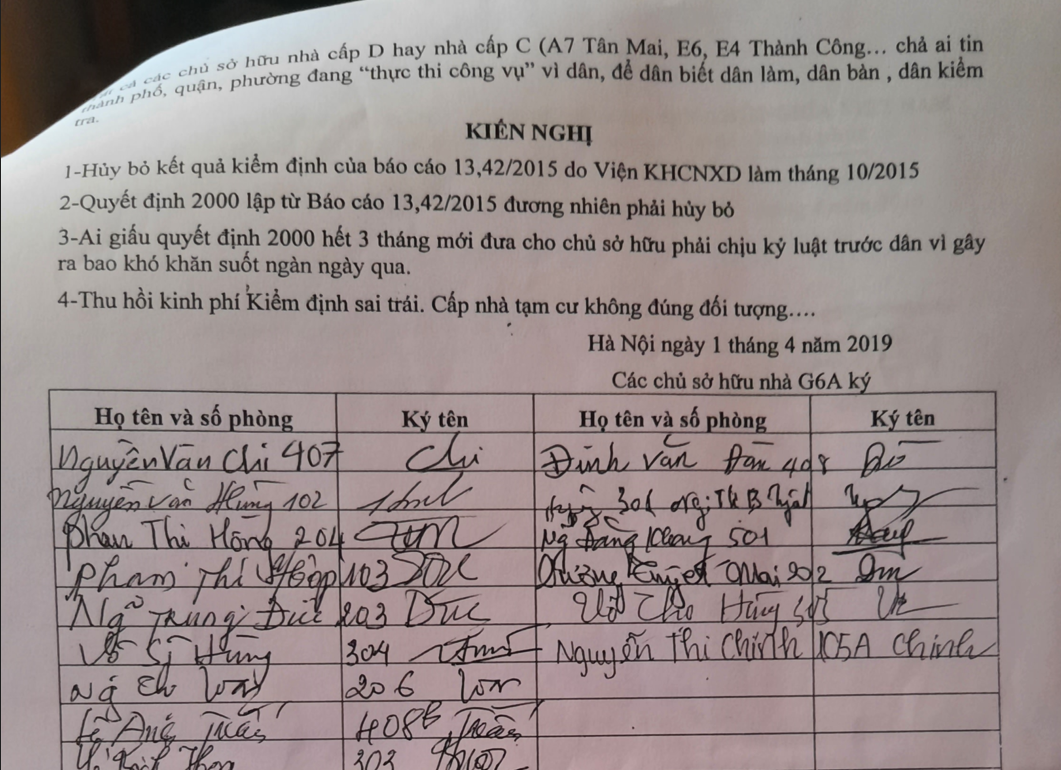 các chủ sở hữu nhà cấp D hay nhà cấp C (A7 Tân Mai, E6, E4 Thành Công... chả ai tin
thành phố, quận, phường đang “thực thi công vụ” vì dân, để dân biết dân làm, dân bàn , dân kiểm
tra.
KIẾN NGHỊ
1-Hủy bỏ kết quả kiểm định của báo cáo 13,42/2015 do Viện KHCNXD làm tháng 10/2015
2-Quyết định 2000 lập từ Báo cáo 13,42/2015 đương nhiên phải hủy bỏ
3-Ai giấu quyết định 2000 hết 3 tháng mới đưa cho chủ sở hữu phải chịu kỷ luật trước dân vì gây
ra bao khó khăn suốt ngàn ngày qua.
4-Thu hồi kinh phí Kiểm định sai trái. Cấp nhà tạm cư không đúng đối tượng....
Hà Nội ngày 1 tháng 4 năm 2019
Các chủ sở hữu nhà G6A ký
Họ tên và số phòng Ký tên Họ tên và số phòng Ký tên
Nguyễn Văn Chi 407 Chi Đinh Văn 408
Nguyễn Văn Hùng 102 301
Phan Thị Hồng 204 Ng Đăng Khang 501
Phạm Thị 103 Mai 202
Ngô Trung Đức 203 Đức Hùng
Võ Sỹ Hùng 304 Nguyễn Thị Chinh 105A Chinh
Ng 206
Lê Anh Tuấn 408B Tuấn
303